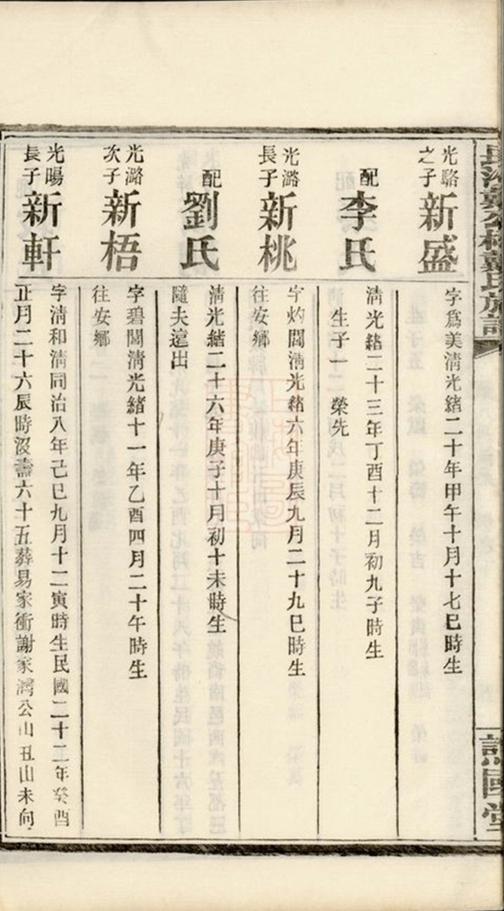 光駱
之子
新盛
字爲美清光緒二十年甲午十月十七巳時生
配
李氏
清光緒二十三年丁酉十二月初九子時生
生子一 榮先
光潞
長子
新桃
字灼閣清光緒六年庚辰九月二十九巳時生
往安鄉
配
劉氏
清光緒二十六年庚子十月初十未時生
隨夫遠出
光潞
次子
新梧
字碧閣清光緒十一年乙酉四月二十午時生
往安鄉
光暘
長子
新軒
字清和清同治八年己巳九月十二寅時生民國二十二年癸酉
正月二十六辰時沒壽六十五葬易家衝謝家灣公山丑山未向